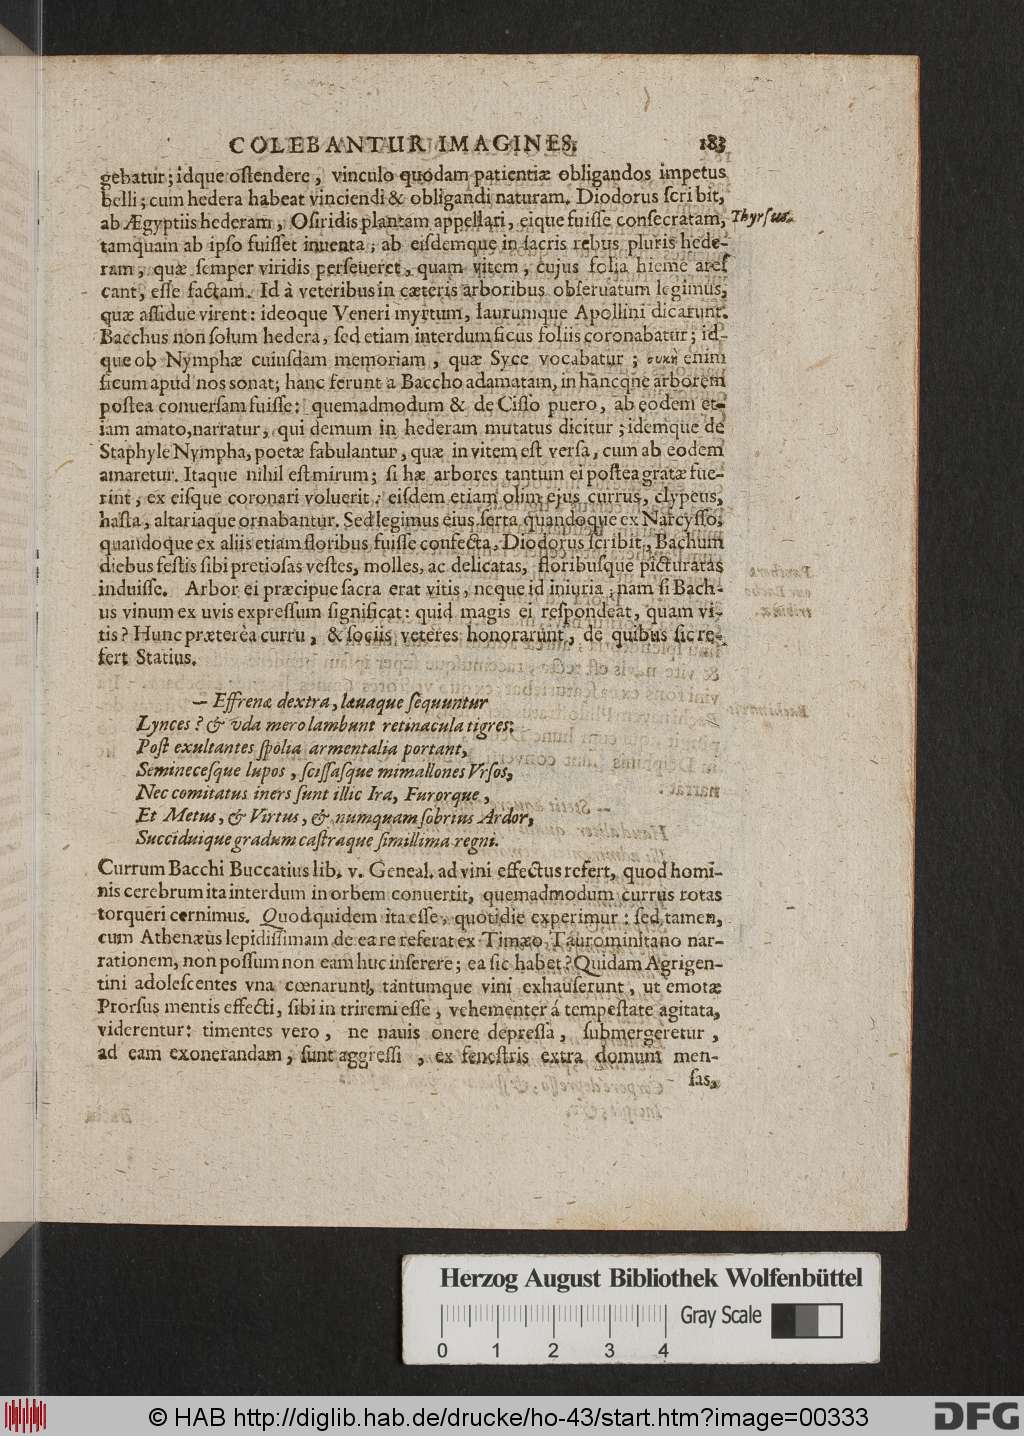 COLEBANTUR IMAGINES. 183
gebatur; idque oſtendere, vinculo quodam patientiæ obligandos impetus
belli; cum hedera habeat vinciendi & obligandi naturam. Diodorus ſcribit,
ab Ægyptiis hederam, Oſiridis plantam appellari, eique fuiſſe conſecratam,
Thyrſus.
tamquam ab ipſo fuiſſet inuenta; ab eiſdemque in ſacris rebus pluris hede-
ram, quæ ſemper viridis perſeueret, quam vitem, cujus folia hieme areſ
cant, eſſe factam. Id à veteribus in cæteris arboribus obſeruatum legimus,
quæ aſſidue virent: ideoque Veneri myrtum, laurumque Apollini dicarunt.
Bacchus non ſolum hedera, ſed etiam interdum ficus foliis coronabatur; id-
que ob Nymphæ cuiuſdam memoriam, quæ Syce vocabatur; συκῆ enim
ficum apud nos sonat; hanc ferunt a Baccho adamatam, in hancque arborem
poſtea conuerſam fuiſſe: quemadmodum & de Ciſſo puero, ab eodem et-
iam amato, narratur, qui demum in hederam mutatus dicitur; idemque de
Staphyle Nympha, poetæ fabulantur, quæ in vitem eſt verſa, cum ab eodem
amaretur. Itaque nihil eſt mirum; ſi hæ arbores tantum ei poſtea gratæ fue-
rint, ex eiſque coronari voluerit: eiſdem etiam olim ejus currus, clypeus,
haſta, altariaque ornabantur. Sed legimus eius ſerta quandoque ex Narcyſſo,
quandoque ex aliis etiam floribus fuiſſe confecta, Diodorus ſcribit, Bachum
diebus feſtis ſibi pretioſas veſtes, molles, ac delicatas, floribuſque picturatas
induiſſe. Arbor ei præcipue ſacra erat vitis, neque id iniuria; nam ſi Bach-
us vinum ex uvis expreſſum ſignificat: quid magis ei reſpondeat, quam vi-
tis? Hunc præterèa curru, & ſociis veteres honorarunt, de quibus ſic re-
fert Statius.
— Effrenæ dextra, læuaque ſequuntur
Lynces? & vda mero lambunt retinacula tigres:
Poſt exultantes ſpolia armentalia portant,
Semineceſque lupos, ſciſſaſque mimallones Vrſos,
Nec comitatus iners ſunt illic Ira, Furorque,
Et Metus, & Virtus, & numquam ſobrius Ardor,
Succiduique gradum caſtraque ſimillima regni.
Currum Bacchi Buccatius lib. v. Geneal. ad vini effectus refert, quod homi-
nis cerebrum ita interdum in orbem conuertit, quemadmodum currus rotas
torqueri cernimus. Quod quidem ita eſſe, quotidie experimur: ſed tamen,
cum Athenæus lepidiſſimam de ea re referat ex Timæo Taurominitano nar-
rationem, non poſſum non eam huc inſerere; ea ſic habet? Quidam Agrigen-
tini adoleſcentes vna cœnarunt, tantumque vini exhauſerunt, ut emotæ
Prorſus mentis effecti, ſibi in triremi eſſe, vehementer á tempeſtate agitata,
viderentur: timentes vero, ne nauis onere depreſſa, ſubmergeretur,
ad eam exonerandam, ſunt aggreſſi, ex feneſtris extra domum men-
ſas,
Herzog August Bibliothek Wolfenbüttel
Gray Scale
0 1 2 3 4
© HAB http://diglib.hab.de/drucke/ho-43/start.htm?image=00333
DFG